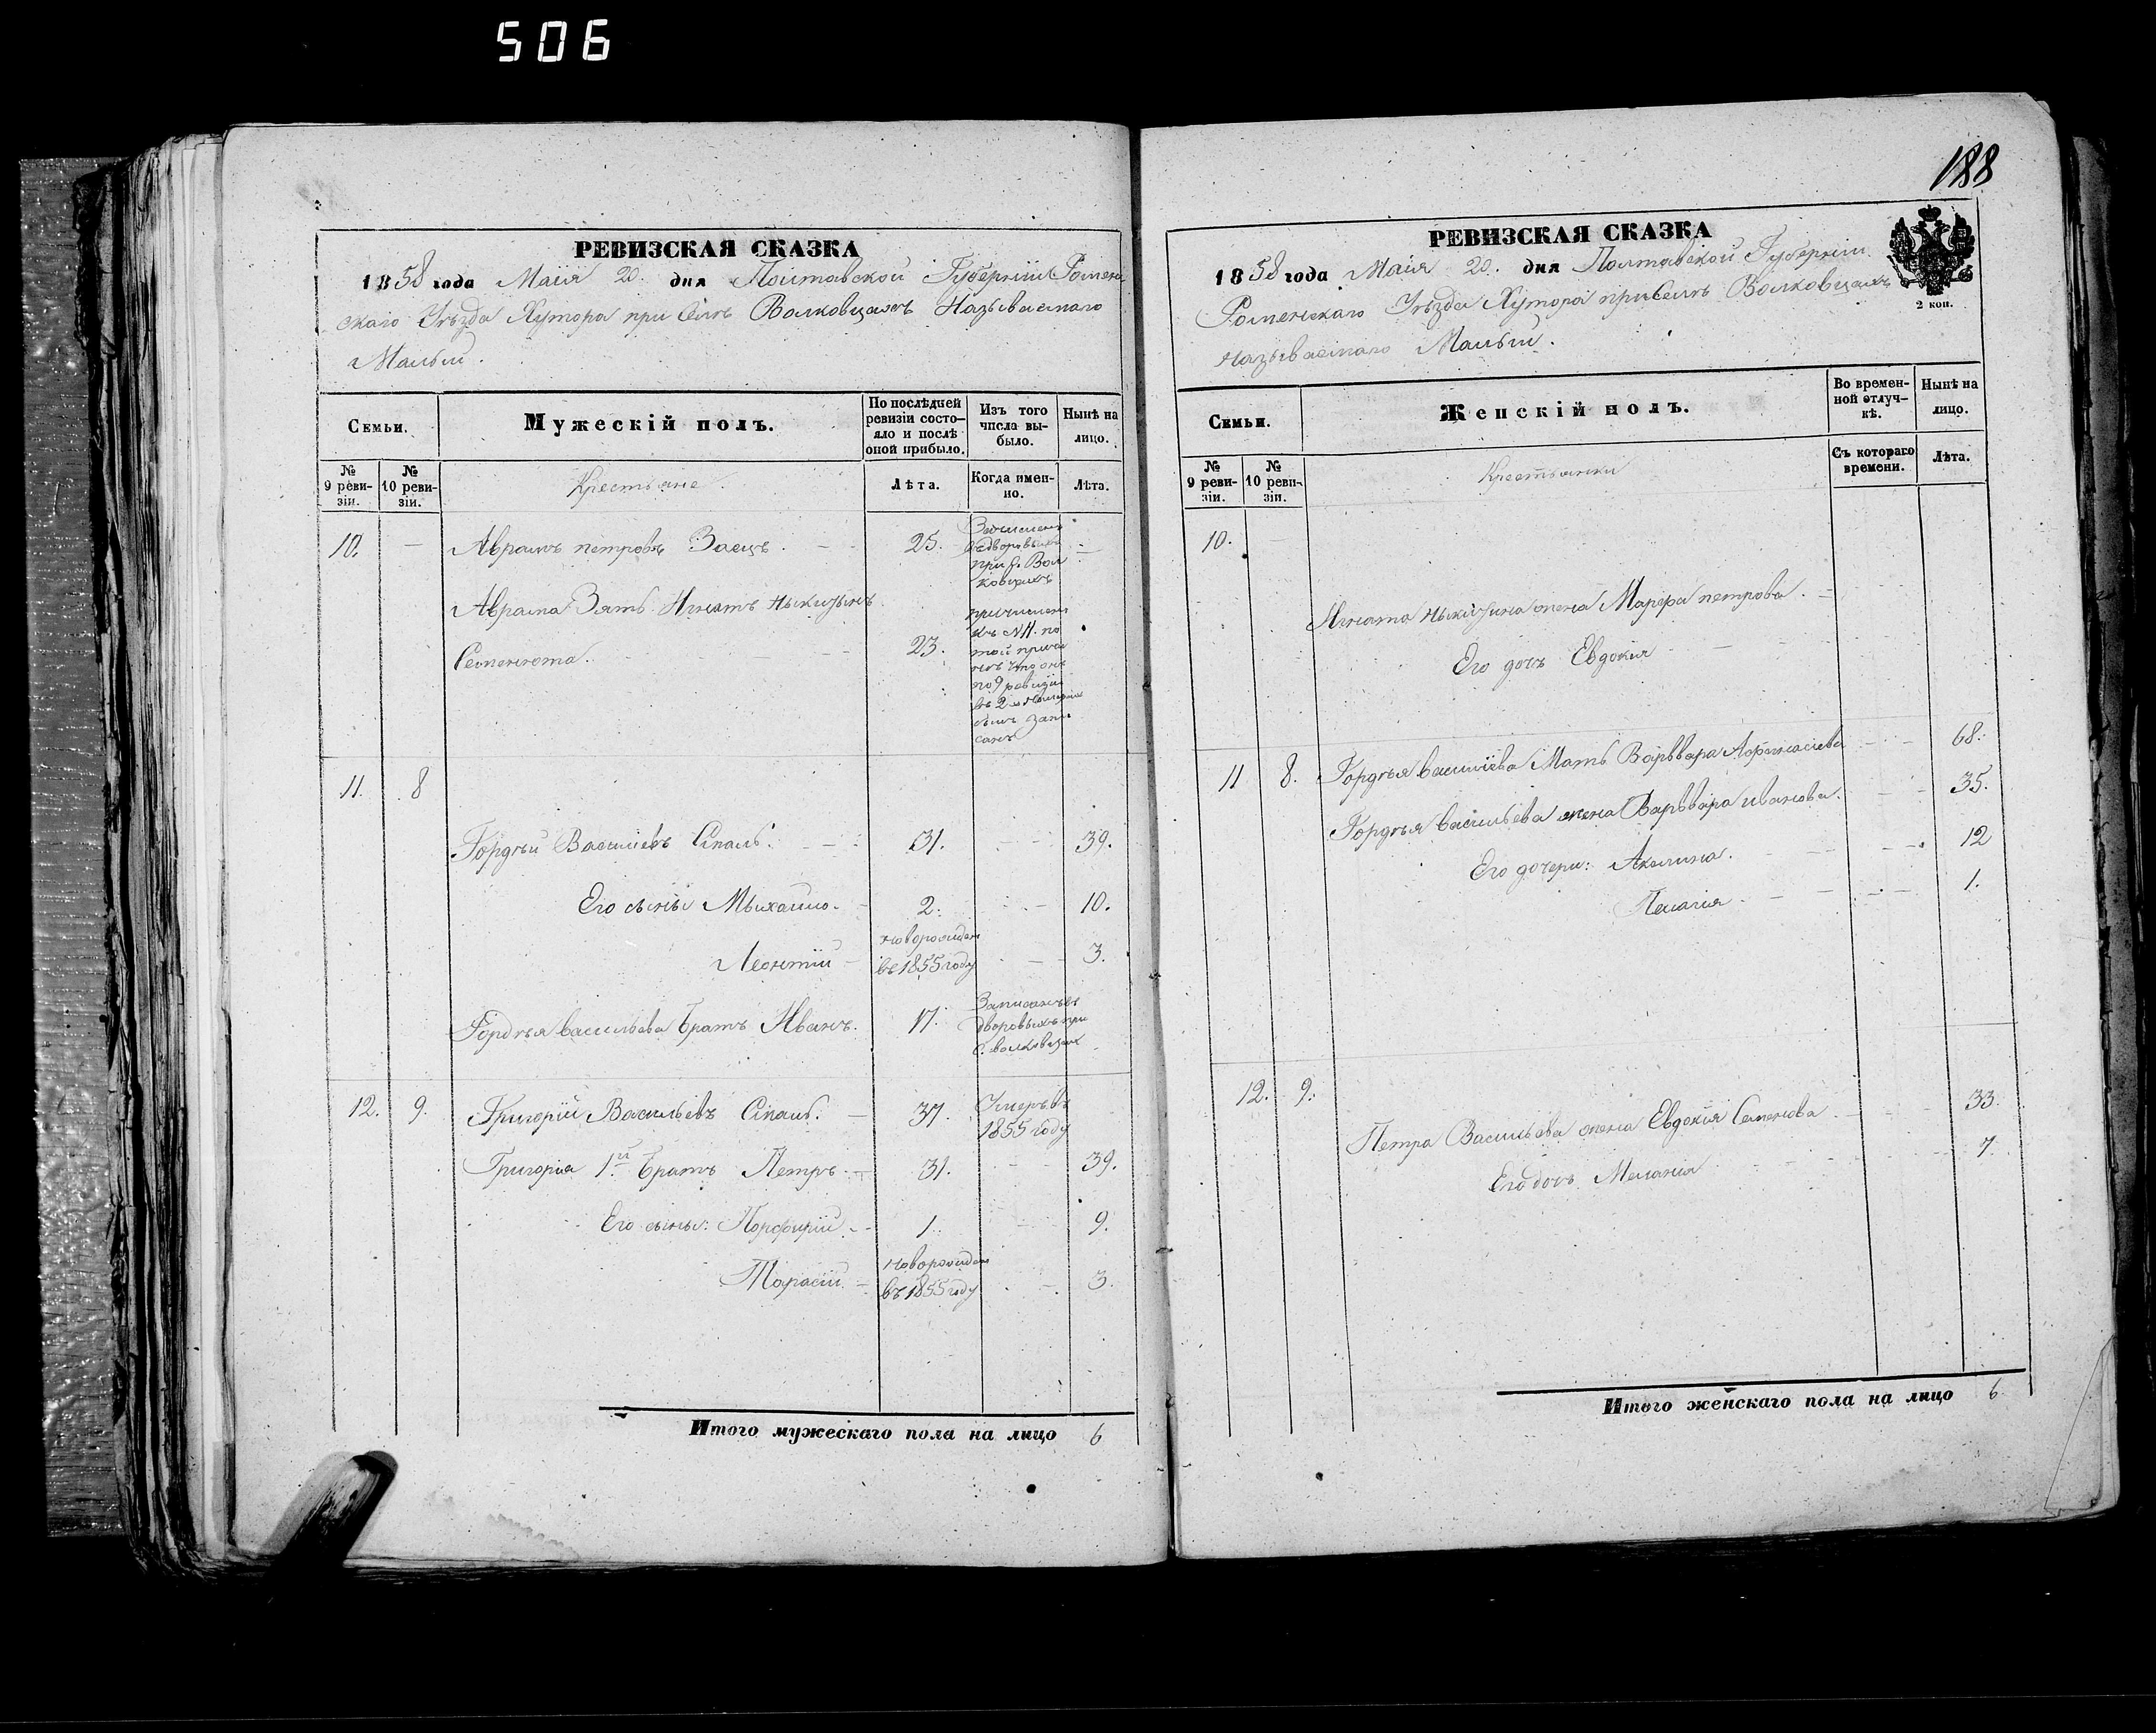 506
РЕВИЗСКАЯ СКАЗКА
1858 года Маія 20. дня Полтавской Губерніи Ромен
скаго Уѣзда Хутора при Селѣ Волковцахъ Называемаго
Малый.
Семьи.
Мужескій полъ.
По послѣдней ревизіи состо-
яло и послѣ
оной прибыло.
Изъ того
числа вы-
было.
Нынѣ на
лицо.
№
9 реви-
зіи.
№
10 реви-
зіи.
Крестьяне.
Лѣта.
Когда имен-
но.
Лѣта.
10. — Аврамъ петровъ Заецъ. — 25. Зачислен
въ дворовыхъ
при с. Вол
ковцахъ
Аврама Зять Игнатъ Ныкизынъ
Семенюта. 23. причислен
къ №11. по
той причи
нѣ что онъ
по 9 ревизіи
былъ запи
санъ
11. 8
Гордѣй Васильевъ Спаль. 31. — 39.
Его сыны Мыхайло. — 2. — 10.
Леонтій — Новорожден
въ 1855 году — 3.
Гордѣя Васильева Братъ Иванъ. 17. Записанъ въ
дворовыхъ при
с. волковцах
12. 9. Григорій Васильевъ Спаль. — 37. Умеръ въ
1855 году
Григорія 1й Братъ Петръ. — 31. — 39.
Его сыны: Порфирій. — 1. — 9.
Тарасій. — Новорожден
въ 1855 году — 3.
Итого мужескаго пола на лицо 6
188
РЕВИЗСКАЯ СКАЗКА
1858 года Маія 20. дня Полтавской Губерніи
Роменскаго Уѣзда Хутора при Селѣ Волковцахъ
Называемаго Малый.
2 коп.
Семьи.
Женскій полъ.
Во времен-
ной отлуч-
кѣ.
Нынѣ на
лицо.
№
9 реви-
зіи.
№
10 реви-
зіи.
Крестьянки
Съ котораго
времени.
Лѣта.
10. —
Игната Ныкизина жена Марфа петрова. —
Его дочь Евдокія —
11 8. Гордѣя Васильева Мать Варввара Афанасіева 68.
Гордѣя Васильева жена Варввара иванова. 35.
Его дочери: Акилина. 12
Пелагія 1.
12. 9.
Петра Васильева жена Евдокія Семенова 33.
Его дочь Меланія 7.
Итого женскаго пола на лицо 6